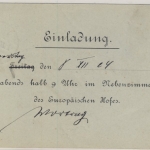 Einladung.
Freitag den 8 VII 04
abends halb 9 Uhr im Nebenzimme
des Europäischen Hofes.
Vortrag